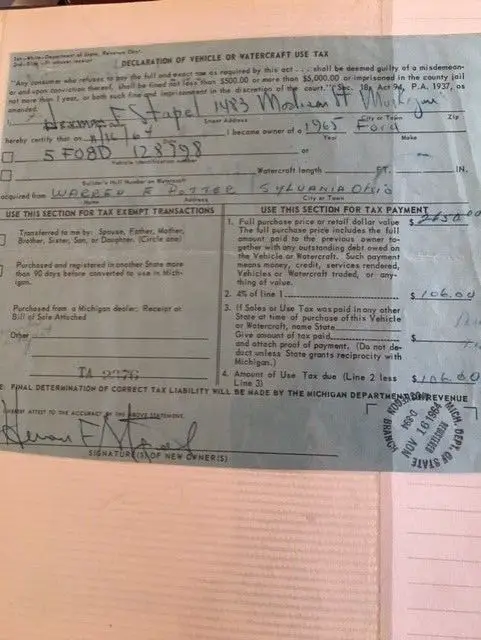 1st-White-Department of State, Revenue Dept.
DECLARATION OF VEHICLE OR WATERCRAFT USE TAX
"Any consumer who refuses to pay the full and exact tax as required by this act . . . shall be deemed guilty of a misdemean-
or and upon conviction thereof, shall be fined not less than $500.00 or more than $5,000.00 or imprisoned in the county jail
not more than 1 year, or both such fine and imprisonment in the discretion of the court." (Sec. 18, Act 94, P.A. 1937, as
amended.
Herman F Stapel 1483 Madison St
Street Address City or Town Zip
hereby certify that on I became owner of a 1965 Ford
Year Make
5F08D 128998 or
Vehicle identification number
Watercraft length FT. IN.
Builder's Hull Number on Watercraft
acquired from WARREN E POTTER SYLVANIA OHIO
Name Address City or Town
USE THIS SECTION FOR TAX EXEMPT TRANSACTIONS
Transferred to me by: Spouse, Father, Mother,
Brother, Sister, Son, or Daughter. (Circle one)
Purchased and registered in another State more
than 90 days before converted to use in Mich-
igan.
Purchased from a Michigan dealer; Receipt or
Bill of Sale Attached
Other
USE THIS SECTION FOR TAX PAYMENT
1. Full purchase price or retail dollar value $ 2650.00
The full purchase price includes the full
amount paid to the previous owner to-
gether with any outstanding debt owed on
the Vehicle or Watercraft. Such payment
means money, credit, services rendered,
Vehicles or Watercraft traded, or any-
thing of value.
2. 4% of line 1 $ 106.00
3. If Sales or Use Tax was paid in any other
State at time of purchase of this Vehicle
or Watercraft, name State
Give amount of tax paid $
and attach proof of payment. (Do not de-
duct unless State grants reciprocity with
Michigan.)
4. Amount of Use Tax due (Line 2 less $ 106.00
Line 3)
FINAL DETERMINATION OF CORRECT TAX LIABILITY WILL BE MADE BY THE MICHIGAN DEPARTMENT OF REVENUE
I HEREBY ATTEST TO THE ACCURACY OF THE ABOVE STATEMENT.
Herman F Stapel
SIGNATURE(S) OF NEW OWNER(S)
MICH. DEPT. OF STATE
NOV 16 1964
BRANCH